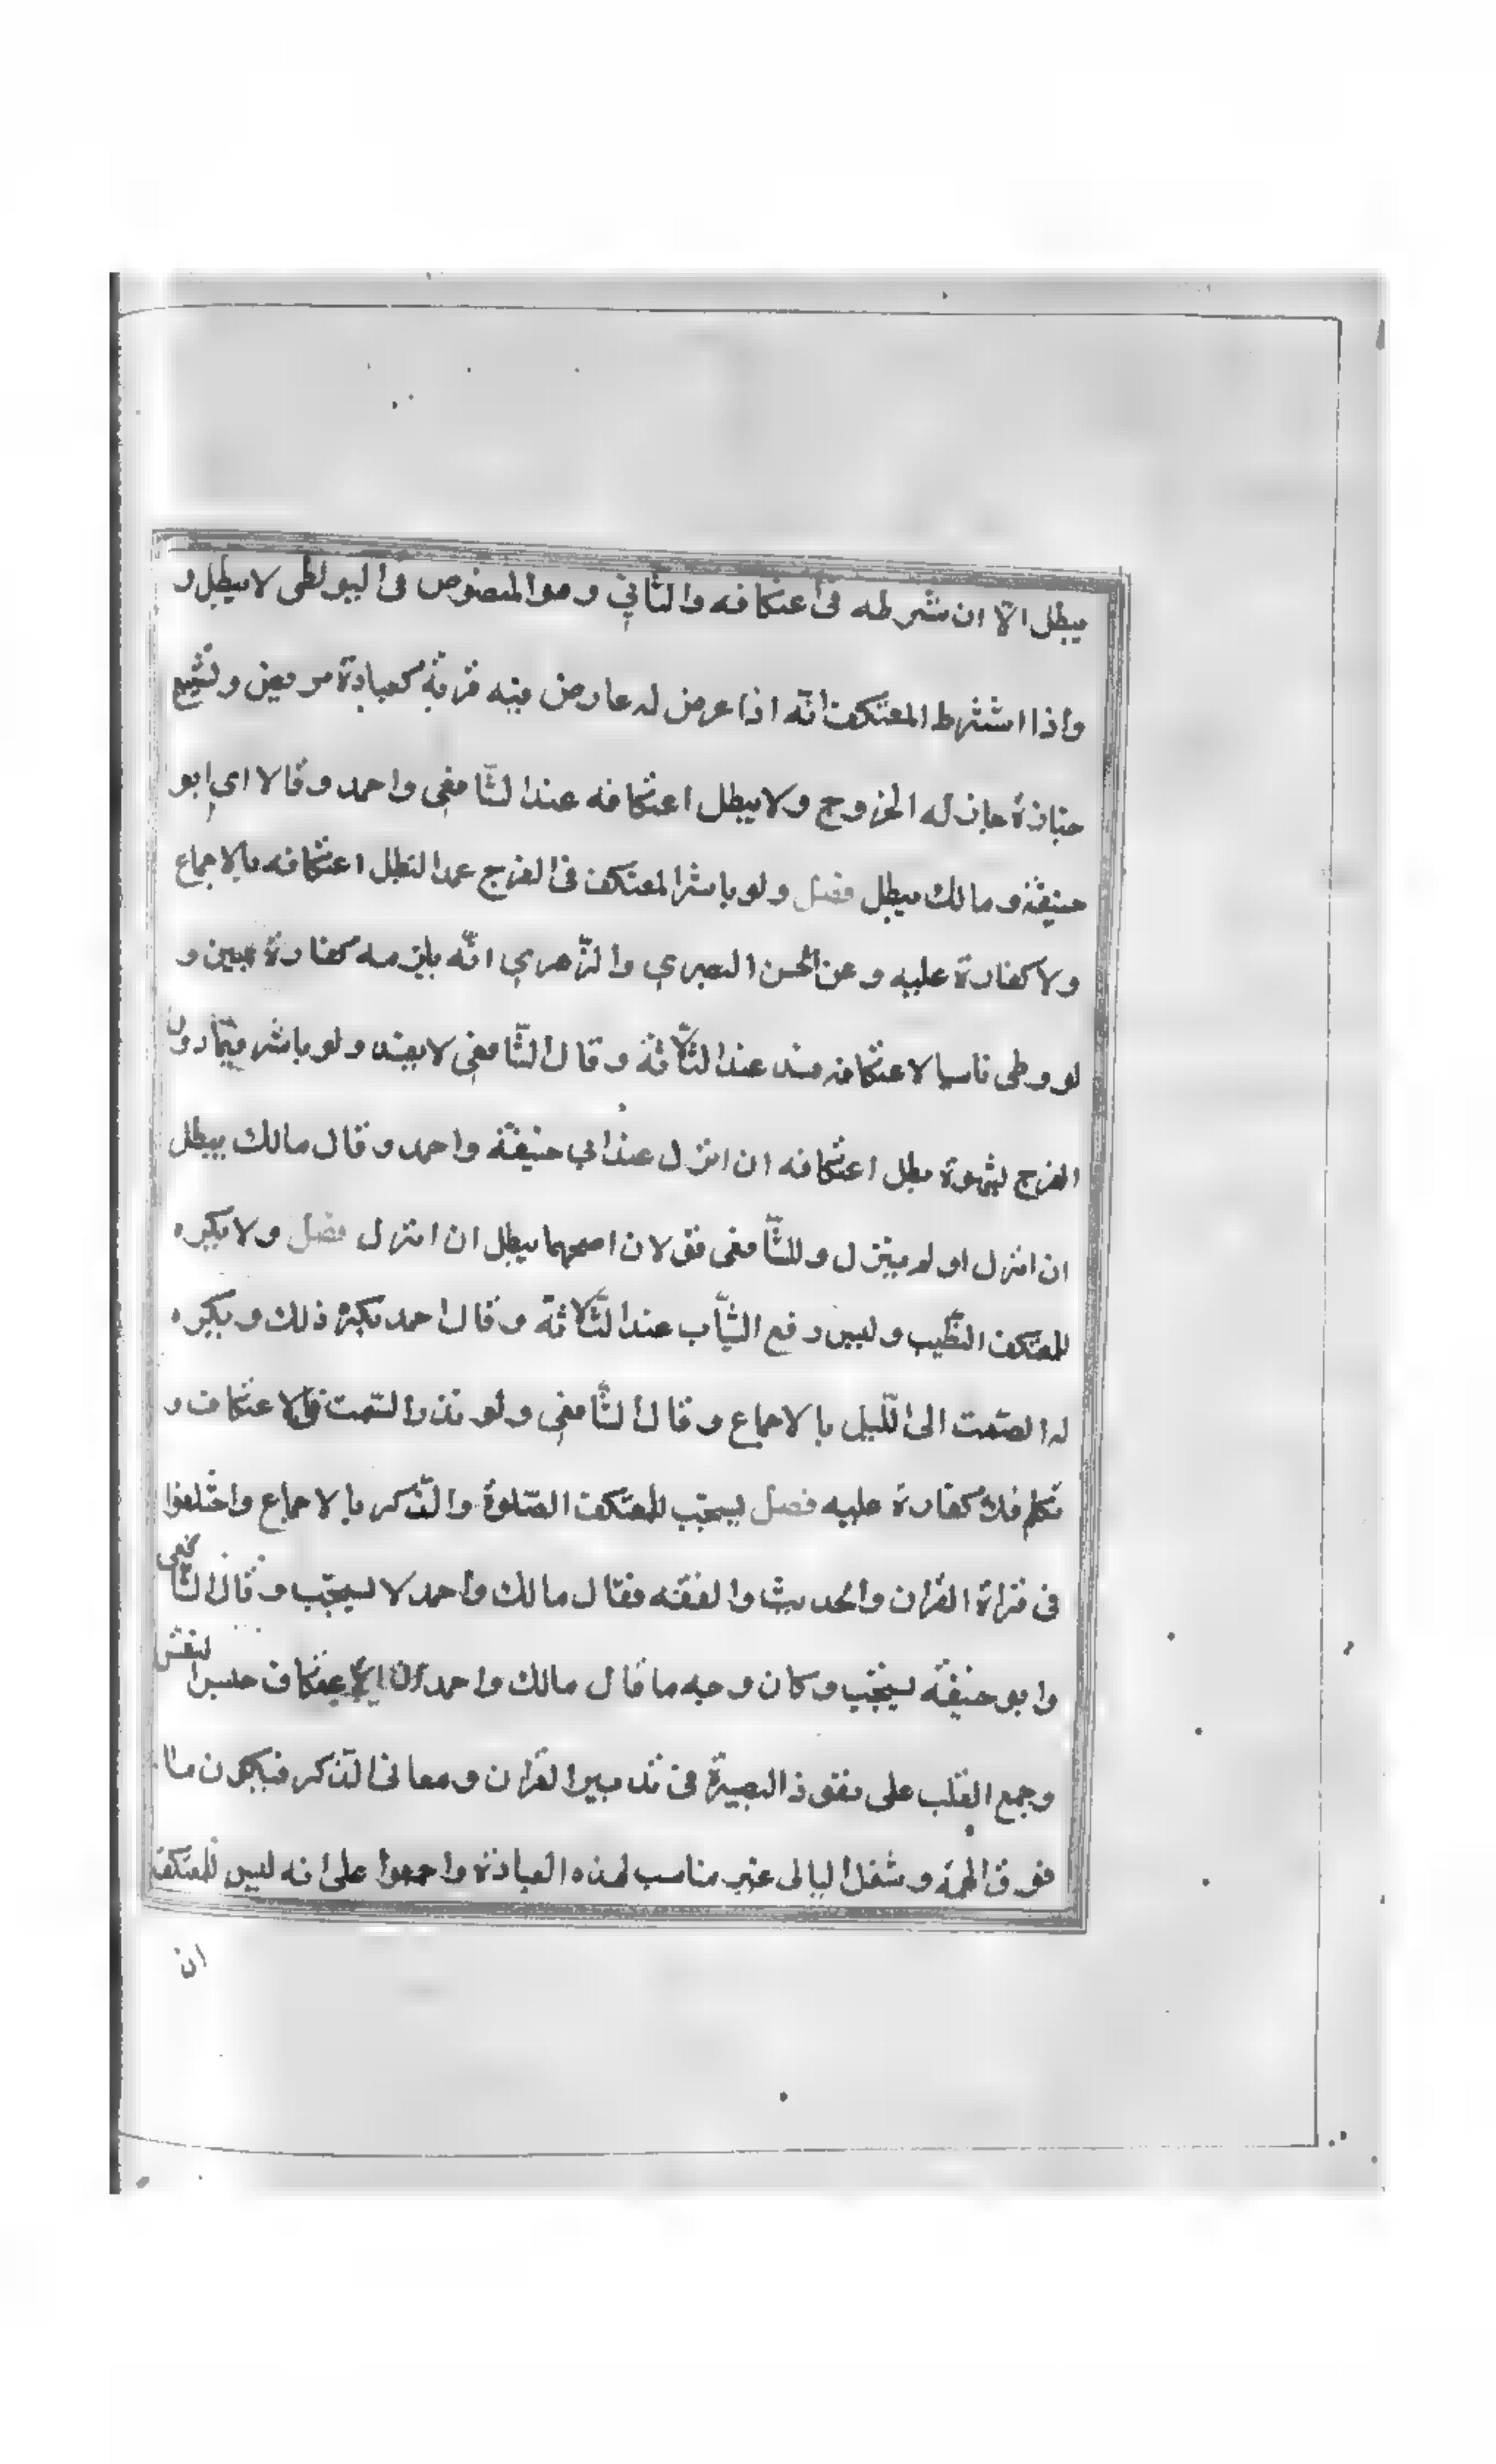 يبطل الّا ان شرطه فى اعتكافه والثاني وهو المنصوص فى البويطى لا يبطل و
واذا اشترط المعتكف انّه اذا عرض له عارض فيه قربة كعيادة مريض وتشييع
جنازة جاز له الخروج ولا يبطل اعتكافه عند الشّافعي واحمد وقالا اي ابو
حنيفة ومالك يبطل فصل ولو باشر المعتكف فى الفرج عمدا لتبطل اعتكافه بالاجماع
ولا كفارة عليه وعن الحسن البصري والزّهري انّه يلزمه كفارة يمين و
لو وطى ناسيا لاعتكافه فسد عند الثّلاثة وقال الشّافعي لا يفسد ولو باشر فيما دون
الفرج بشهوة بطل اعتكافه ان انزل عند ابي حنيفة واحمد وقال مالك يبطل
ان انزل او لم ينزل وللشّافعى قولان اصحهما يبطل ان انزل فصل ولا يكره
للمعتكف التطّيب ولبس رفع الثّياب عند الثّلاثة وقال احمد يكره ذلك ويكره
له الصّمت الى اللّيل بالاجماع وقال الشّافعي ولو نذر الصّمت فى الاعتكاف و
تكلم فلا كفارة عليه فصل يستحبّ للمعتكف الصّلوة والذّكر بالاجماع واختلفوا
فى قراة القران والحديث والفقه فقال مالك واحمد لا يستحبّ وقال الشّافعى
وابو حنيفة يستحبّ وكان وجه ما قال مالك واحمد ان الاعتكاف حبس النفس
وجمع القلب على نفوذ البصيرة فى تدبير القران ومعانى الذّكر فيكون ما
فرق الهمّة وشغل البالى غير مناسب لهذه العبادة واجمعوا على انه ليس للمعتكف
ان